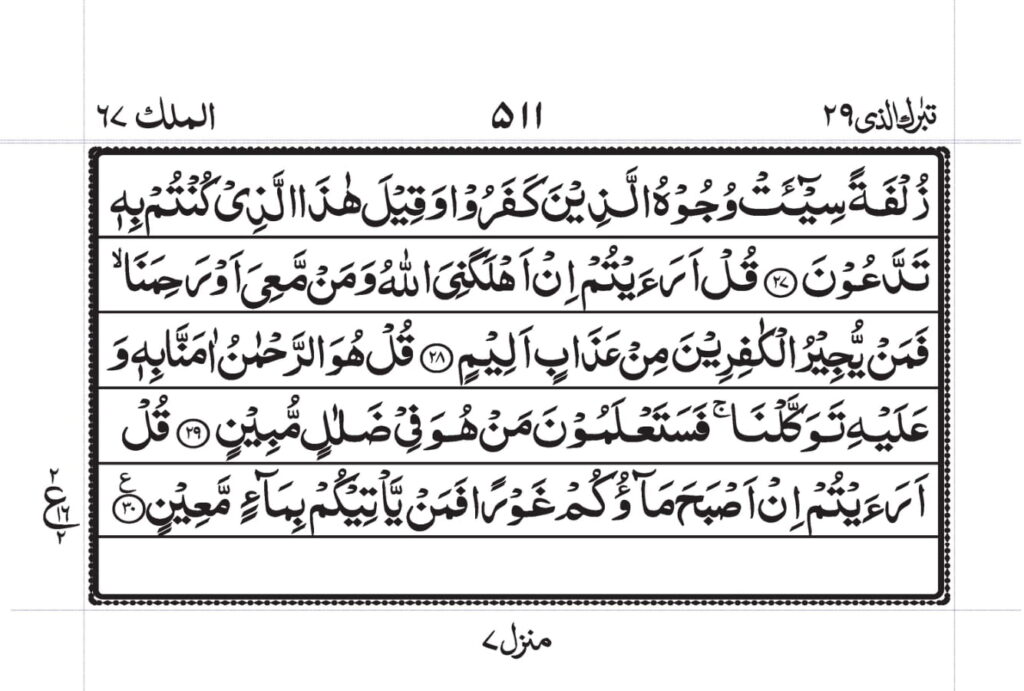 تبٰرك الذی ۲۹ ۵۱۱ الملك ۶۷
زُلْفَةً سِيْٓـَٔتْ وُجُوْهُ الَّذِيْنَ كَفَرُوْا وَ قِيْلَ هٰذَا الَّذِیْ كُنْتُمْ بِهٖ
تَدَّعُوْنَ ۝۲۷ قُلْ اَرَءَيْتُمْ اِنْ اَهْلَكَنِیَ اللّٰهُ وَ مَنْ مَّعِیَ اَوْ رَحِمَنَا ۙ
فَمَنْ يُّجِيْرُ الْكٰفِرِيْنَ مِنْ عَذَابٍ اَلِيْمٍ ۝۲۸ قُلْ هُوَ الرَّحْمٰنُ اٰمَنَّا بِهٖ وَ
عَلَيْهِ تَوَكَّلْنَا ۚ فَسَتَعْلَمُوْنَ مَنْ هُوَ فِیْ ضَلٰلٍ مُّبِيْنٍ ۝۲۹ قُلْ
اَرَءَيْتُمْ اِنْ اَصْبَحَ مَآؤُكُمْ غَوْرًا فَمَنْ يَّاْتِيْكُمْ بِمَآءٍ مَّعِيْنٍ ۝۳۰ ع
۲
ع ۱۶
۲
منزل ۷